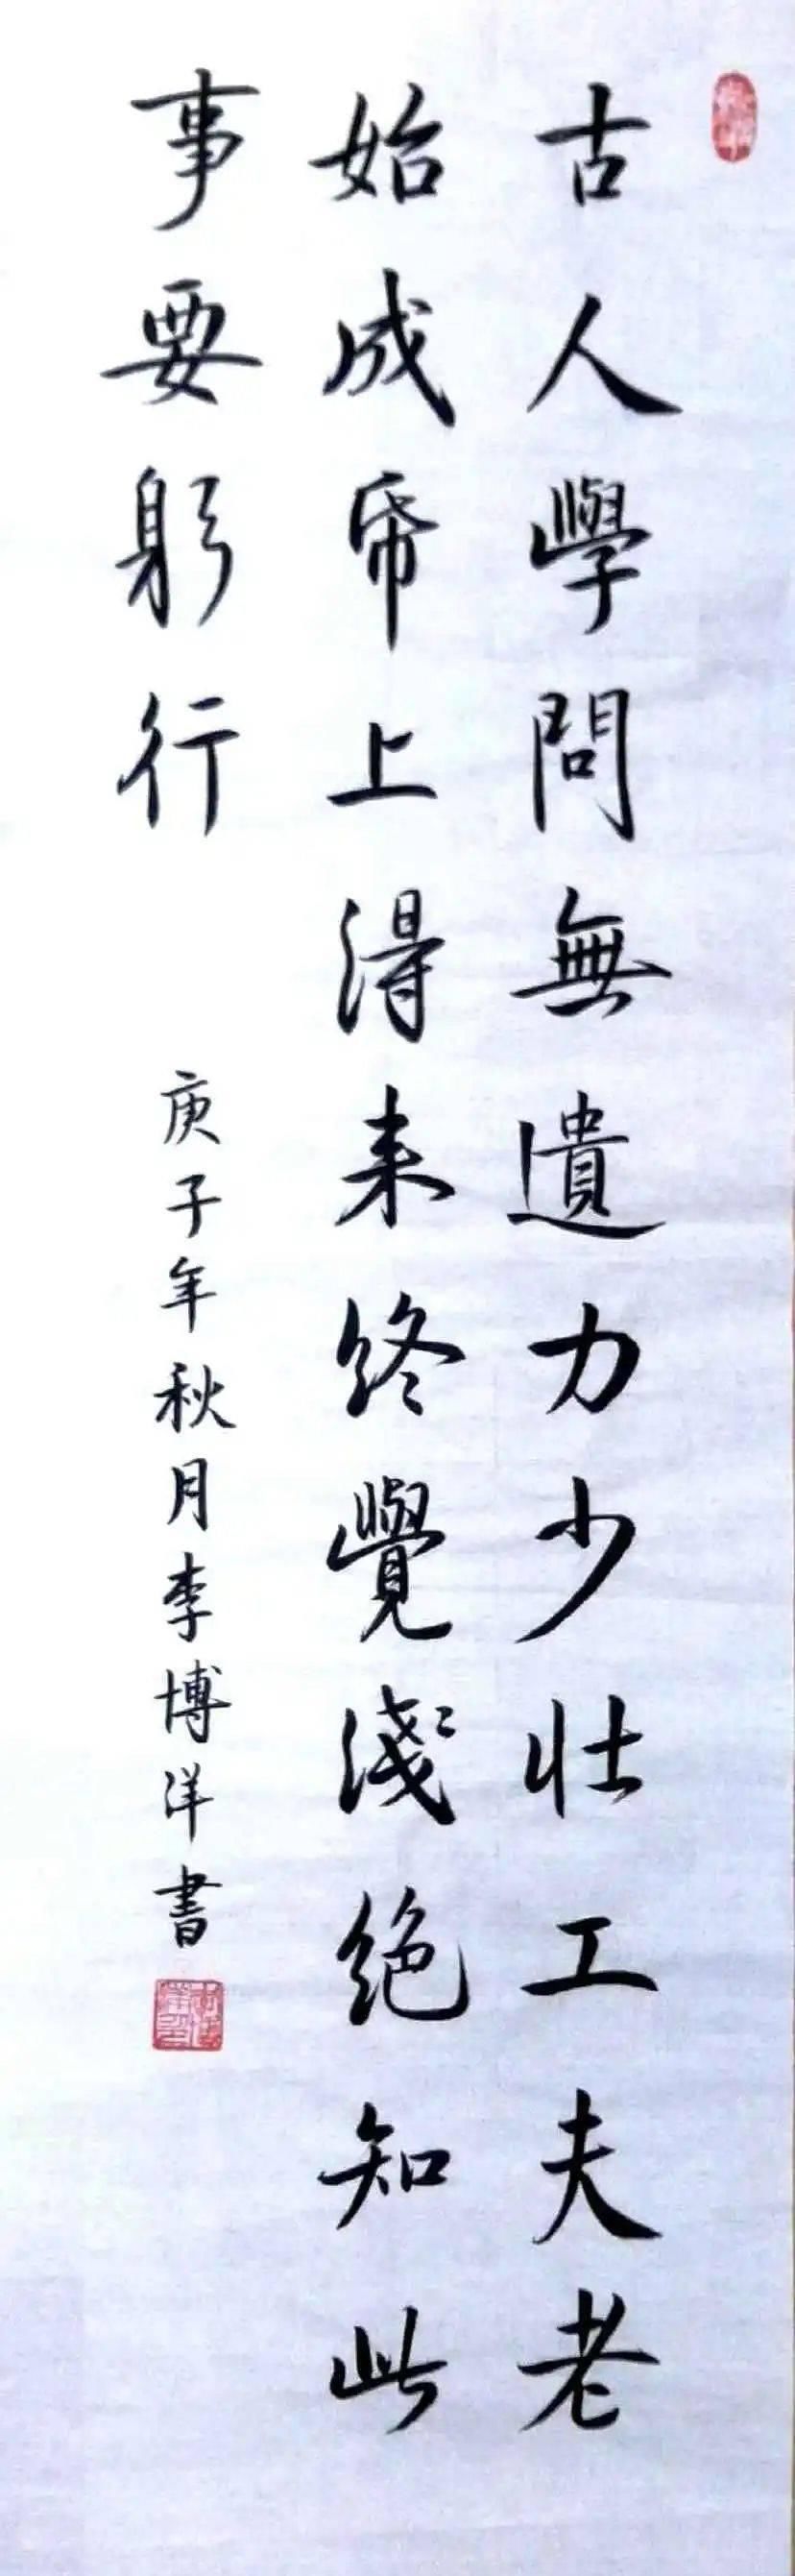 古人學問無遺力少壯工夫老
始成帋上得来终覺淺绝知此
事要躬行
庚子年秋月李博洋書